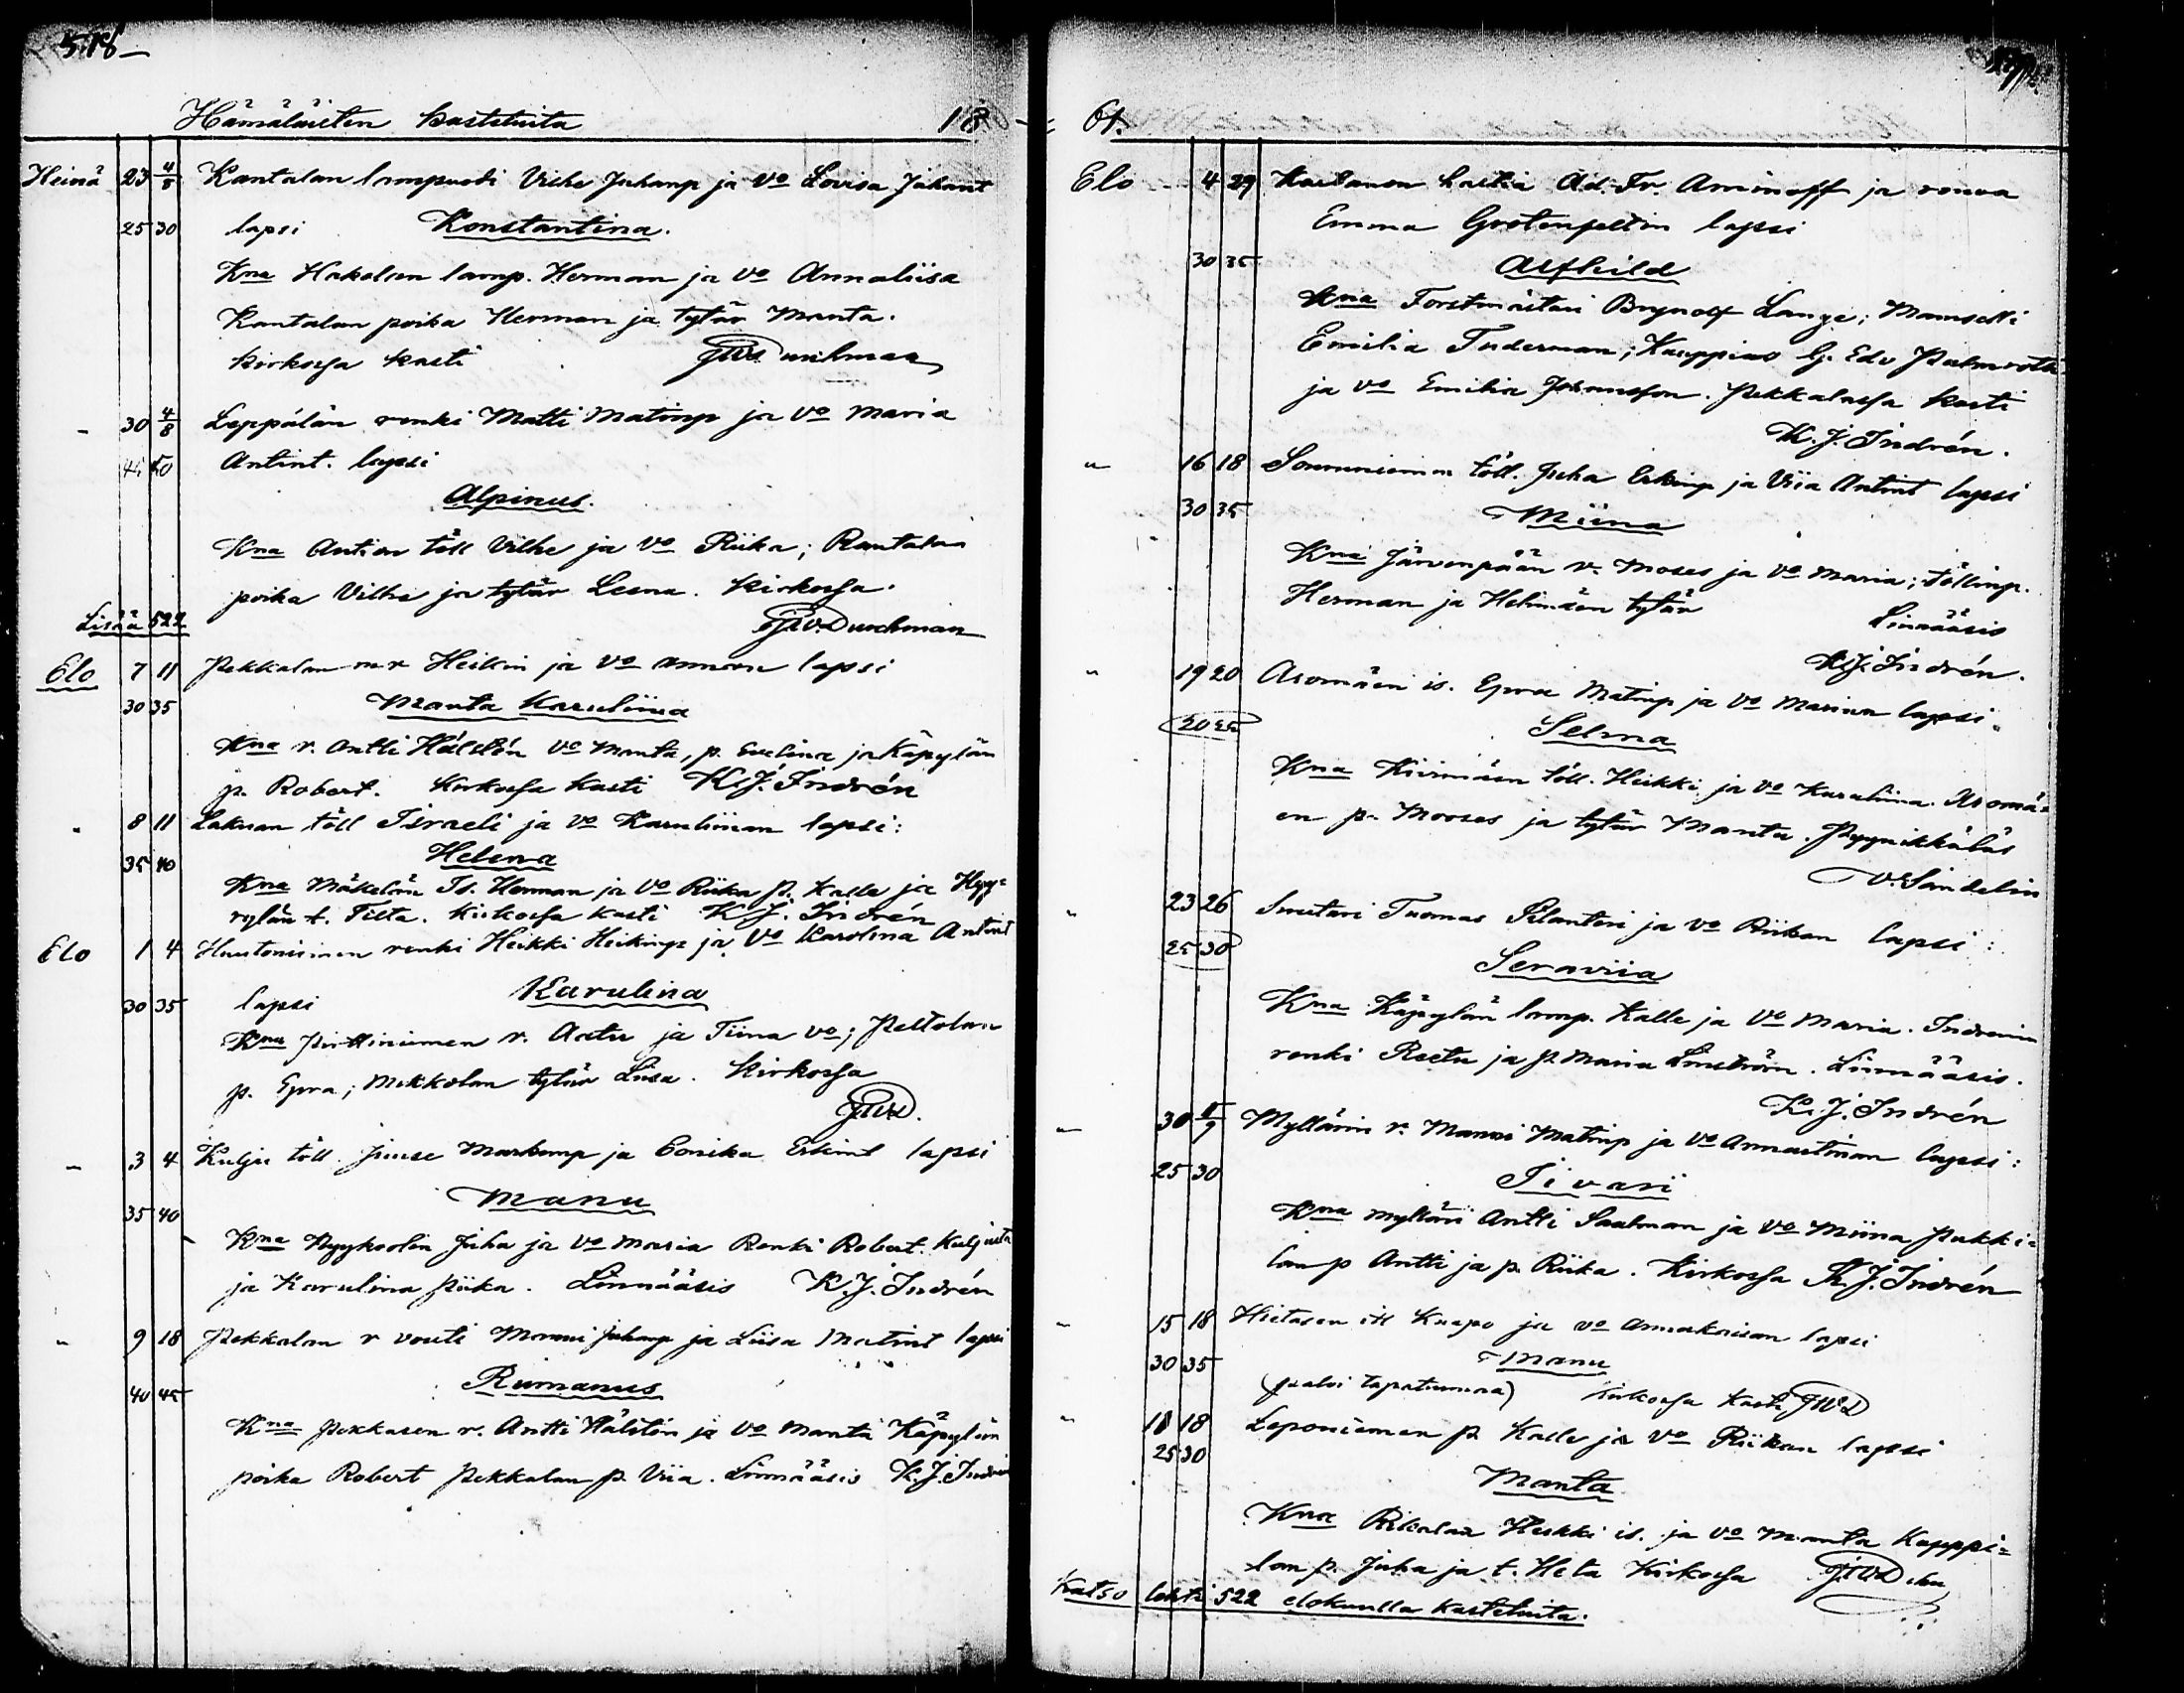 518
Hämäläisten kastetuita 18
Heinä 23 4/8 Kantalan lampuodi Vilhe Juhanp ja vo Lovisa Juhant
25 30 lapsi Konstantina.
Kna Hakolan lamp. Herman ja vo Annaliisa
Kantalan poika Herman ja tytär Manta.
kirkossa kasti JWDurchman
- 30 4/8 Leppälän renki Matti Matinp ja vo Maria
44 50 Antint. lapsi
Alpinus.
Kna Antion töll Vilhe ja vo Riika; Rantalan
poika Vilhe ja tytär Leena. Kirkossa.
Lisää 522 JWDurchman
Elo 7 11 Pekkalan m r Heikin ja vo Annan lapsi
30 35 Manta Karuliina
Kna r. Antti Hälstén vo Manta, p. Evelina ja Käpylän
p. Robert. Kirkossa kasti K.J. Indrén
" 8 11 Lakuan töll Iisraeli ja vo Karuliinan lapsi:
35 40 Helena
Kna Mäkelän Is. Herman ja vo Riika p. Kalle ja Hyy=
rylän t. Tilta. Kirkossa kasti K.J. Indrén
Elo 1 4 Huutoniemen renki Heikki Heikinp ja vo Karolina Antint
30 35 lapsi Karulina
Kna Pirttiniemen r. Aatu ja Tiina vo; Peltolan
p. Epra; Mikkolan tytär Liisa. Kirkossa
JWD.
- 3 4 Kulju töll. Juuse Markunp ja Eorika Erkint lapsi
35 40 Manu
Kna Nyykoolin Juha ja vo Maria Renki Robert Kuljusta
ja Karulina piika. Linnääsis K.J. Indrén
" 9 18 Pekkalan r vouti Manni Juhanp ja Liisa Matint lapsi
40 45 Rumanus
Kna Pekkasen r. Antti Hälstén ja vo Manta Käpylän
poika Robert Pekkalan p. Viia. Linnääsis K.J. Indrén
61.
Elo 4 29 Kartanon haltia Ad. Fr. Aminoff ja rouva
Emma Grotenfeltin lapsi
30 35 Alfhild
Kna Forstmästari Brynolf Lange; Mamselli
Emilia Tuderman; Kauppias G. Edv Palmroth
ja vo Emilia Johansson. Pekkalassa kasti
K.J. Indrén.
" 16 18 Sommeniemen töll. Juha Erkinp ja Viia Antint lapsi
30 35 Miina
Kna Järvenpään v. Moses ja vo Maria; töllinp.
Herman ja Helimäen tytär Linnääsis
K.J. Indrén.
" 19 20 Aromäen is. Epra Matinp ja vo Marian lapsi
20 25 Selma
Kna Kivimäen töll. Heikki ja vo Karuliina. Aromä=
en p. Mooses ja tytär Manta. Pyynikkäläs
V. Sandelin
" 23 26 Suutari Tuomas Pilanteri ja vo Riikan lapsi:
25 30 Seraviia
Kna Käpylän lamp. Kalle ja vo Maria. Indrenin
renki Reetu ja p. Maria Linström. Linnääsis.
K.J. Indrén
" 30 1/9 Myllärin r. Manni Matinp ja vo Annastiinan lapsi:
25 30 Iivari
Kna mylläri Antti Saalman ja vo Miina Pukki=
lan p Antti ja p. Riika. Kirkossa K.J. Indrén
" 15 18 Hietasen itl Kaapo ja vo Annakaisan lapsi
30 35 Manu
(palvi tapatumna) Kirkossa kasti JWD
" 18 18 Leponiemen p. Kalle ja vo Riikan lapsi
25 30 Manta
Kna Rikalan Heikki is. ja vo Manta Kauppi=
lan p. Juha ja t. Heta Kirkossa JWD
Katso lehti 522 elokuulla kastetuita.